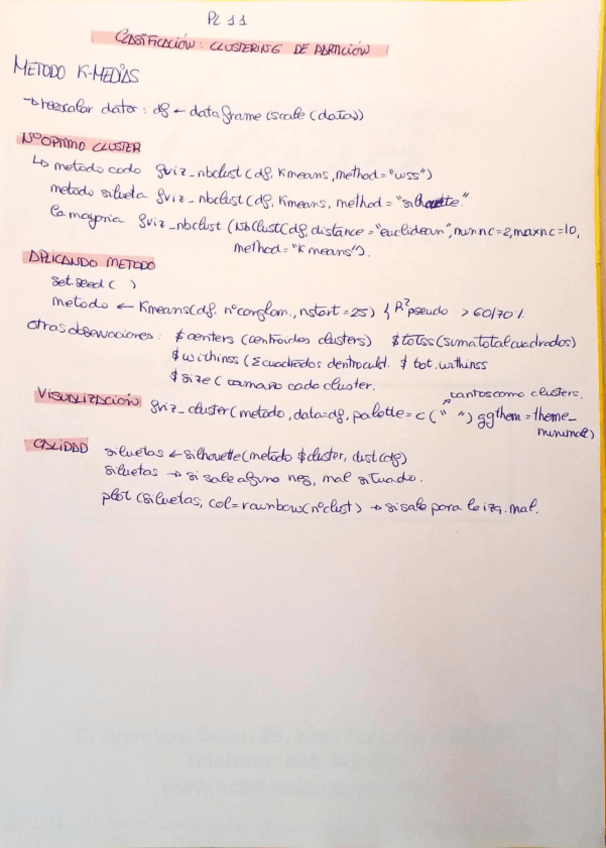 PL 11
CLASIFICACIÓN: CLUSTERING DE PARTICIÓN
METODO K-MEDIAS
→ reescalar datos: df ← data frame (scale (datos))
Nº OPTIMO CLUSTER
↳ metodo codo fviz_nbclust (df, Kmeans, method = "wss")
metodo silueta fviz_nbclust (df, Kmeans, method = "silhouette"
la mayoria fviz_nbclust (NbClust(df, distance = "euclidean", minnc=2, maxnc=10,
method= "Kmeans").
APLICANDO METODO
set.seed ( )
metodo ← Kmeans(df, nºconglom., nstart = 25) { R² pseudo > 60/70%
otras observaciones: $centers (centroides clusters) $totss (suma total cuadrados)
$withinss (Σ cuadrados dentro clust. $ tot.withinss
$size ( tamaño cada cluster.
tantos como clusters.
VISUALIZACIÓN fviz_cluster(metodo, data=df, palette = c (" ") ggthem = theme_
minimal)
CALIDAD siluetas ← silhouette(metodo $cluster, dist(df)
siluetas → si sale alguno neg, mal situado.
plot (siluetas, col=rainbow(nºclust) → si sale para la izq. mal.